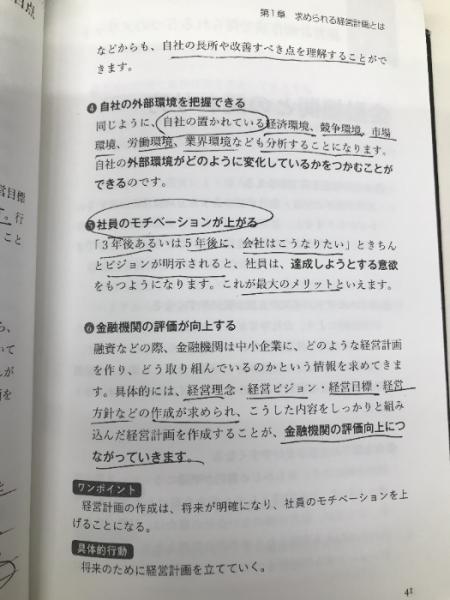 第1章 求められる経営計画とは
などからも、自社の長所や改善すべき点を理解することがで
きます。
❹自社の外部環境を把握できる
同じように、自社の置かれている経済環境、競争環境、市場
環境、労働環境、業界環境なども分析することになります。
自社の外部環境がどのように変化しているかをつかむことが
できるのです。
❺社員のモチベーションが上がる
「3年後あるいは5年後に、会社はこうなりたい」ときちん
とビジョンが明示されると、社員は、達成しようとする意欲
をもつようになります。これが最大のメリットといえます。
❻金融機関の評価が向上する
融資などの際、金融機関は中小企業に、どのような経営計画
を作り、どう取り組んでいるのかという情報を求めてきま
す。具体的には、経営理念・経営ビジョン・経営目標・経営
方針などの作成が求められ、こうした内容をしっかりと組み
込んだ経営計画を作成することが、金融機関の評価向上につ
ながっていきます。
ワンポイント
経営計画の作成は、将来が明確になり、社員のモチベーションを上
げることになる。
具体的行動
将来のために経営計画を立てていく。
41